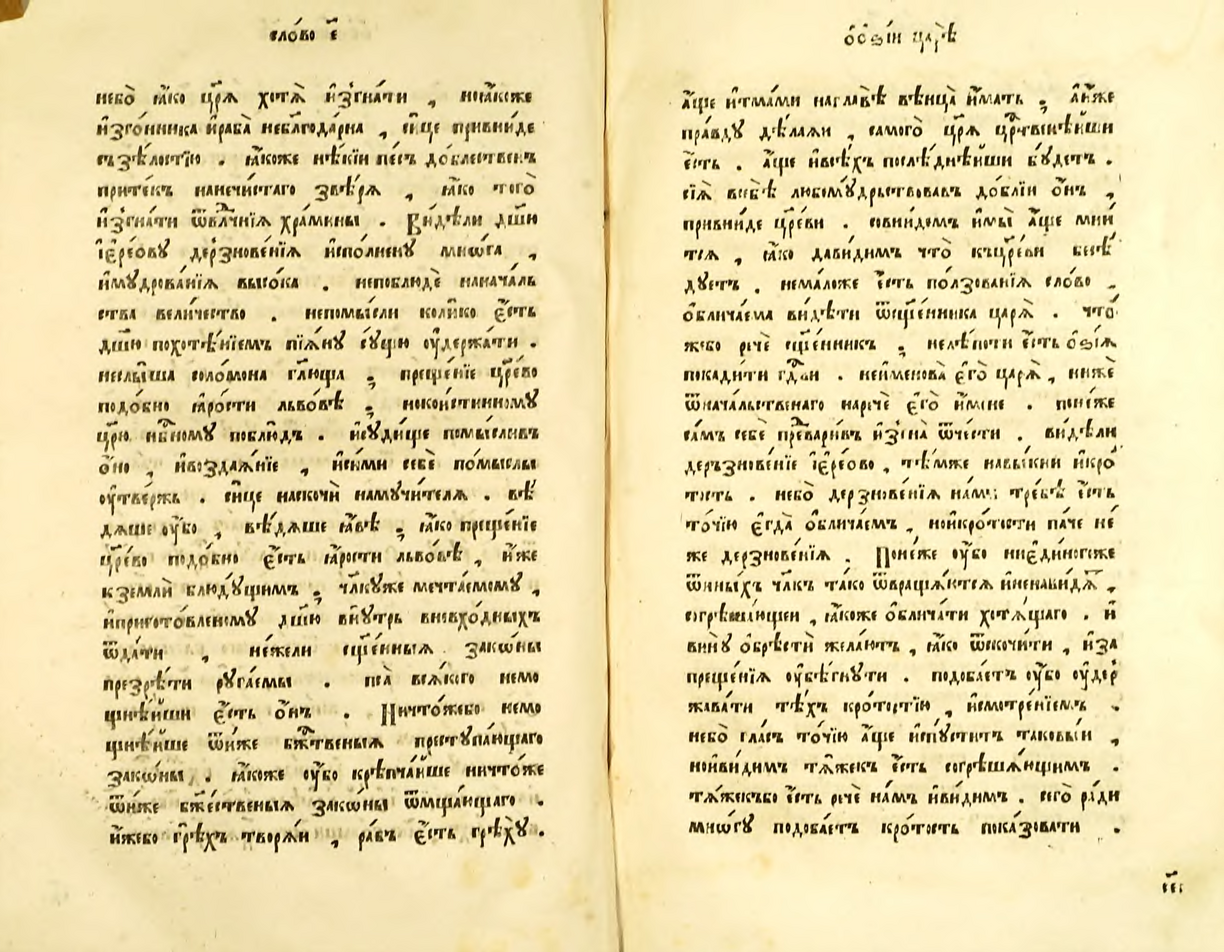 сло́во є҃
небо̀ ꙗ҆́ко цр҃ѧ хотѧ̀ и҆згна́ти , ноꙗ҆́коже
и҆зго́нника и҆раба̀ неблагода́рна , си́це привни́де
съѕѣ́лостїю . ꙗ҆́коже нѣ́кїи пе́съ до́блественъ
прите́къ нанечи́стаго ѕвѣ́рѧ , ꙗ҆́ко того̀
и҆згна́ти ѿвлⷣчнїѧ хра́мины . Ви́дѣли дш҃ю
і҆ере́ову дерзнове́нїѧ и҆спо́лнену мно́га ,
и҆мудрова́нїѧ высо́ка . непоблюдѐ нанача́ль
ства вели́чество . непомы́сли коли́ко є҆́сть
дш҃ю похотѣ́нїемъ пїѧ́ну су́щю ѹ҆держа́ти .
неслы́ша соломо́на гл҃юща ; преще́нїе цр҃ево
подо́бно ꙗ҆́рости льво́вѣ ; нокои́стинному
цр҃ю нбⷭ҇ному поблю́дъ . и҆суди́ще помы́сливъ
о҆́но , и҆воздаѧ́нїе , и҆си́ми себѐ по́мыслы
ѹ҆тве́ржь . си́це наскочѝ намучи́телѧ . вѣ́
дѧше ѹ҆́бо , вѣ́дѧше ꙗ҆́вѣ ; ꙗ҆́ко преще́нїе
цр҃ево подо́бно є҆́сть ꙗ҆́рости льво́вѣ , и҆́же
кземлѝ блюду́щимъ ; чл҃куже мечта́емому ,
и҆пригото́вленому дш҃ю вну́трь вновхо́дныхъ
ѿда́ти , не́жели сщ҃е́нныѧ зако́ны
презрѣ́ти руга́емы . пса̀ всѧ́кого немо
щнѣ́йши є҆́сть о҆́нъ . Ничто́жебо немо
щнѣ́йше ѿни́же бжⷭ҇твеныѧ преступа́ющаго
зако́ны . ꙗ҆́коже ѹ҆́бо крѣпча́йше ничто́же
ѿни́же бж҃е́ственыѧ зако́ны ѿмща́ющаго .
и҆́жебо грѣ́хъ творѧ́и , ра́бъ є҆́сть грѣ́ху .
о҆ѻ҆зі́и царѣ̀
а҆́ще и҆тма́ми наглавѣ̀ вѣнца̀ и҆́мать ; а҆и҆́же
пра́вду дѣ́лаѧи , самого̀ цр҃ѧ црⷭ҇твенѣ́йши
є҆́сть . а҆́ще и҆всѣ́хъ послѣ́днѣйши бу́детъ .
сїѧ̀ всебѣ̀ любому́дрьствовавъ до́блїи о҆́нъ ,
привни́де цр҃еви . совни́демъ и҆мы̀ а҆́ще мни́
тсѧ , ꙗ҆́ко дави́димъ что̀ къцр҃еви бесѣ̀
дуетъ . нема́ложе є҆́сть по́лзованїѧ сло́во ,
о҆блича́ема ви́дѣти ѿсщ҃е́нника царѧ̀ . что̀
же́бо речѐ сщ҃е́нникъ ; нелѣ́поти є҆́сть ѻ҆зі́ѧ
покади́ти гдⷭ҇ви . неи҆менова̀ є҆го̀ царѧ̀ , ниже
ѿнача́льственаго наречѐ є҆го̀ и҆́мене . поне́же
са́мъ себѐ превари́въ и҆згна̀ ѿче́сти . ви́дѣли
дерзнове́нїе і҆ере́ово , тѣ́мже навы́кни и҆кро́
тость . небо̀ дерзнове́нїѧ на́мъ тре́бѣ є҆́сть
то́чїю є҆гда̀ о҆блича́емъ , нои҆кро́тости па́че не́
же дерзнове́нїѧ . Поне́же ѹ҆́бо ниє҆ди́ногоже
ѿи́ныхъ чл҃къ та́ко ѿвраща́ютсѧ и҆ненави́дѧⷮ ,
согрѣша́ющеи , ꙗ҆́коже о҆блича́ти хотѧ́щаго . и҆
вину̀ о҆брѣ́сти жела́ютъ , ꙗ҆́ко ѿскочи́ти , и҆за
преще́нїѧ ѹ҆бѣ́гнути . подоба́етъ ѹ҆́бо ѹ҆дер̾
жава́ти тѣ́хъ кро́тостїю , и҆смотре́нїемъ .
небо̀ гла́съ то́чїю а҆́ще и҆спу́ститъ таковы́и ,
нои҆ви́димъ тѧ́жекъ є҆́сть согрѣша́ющимъ .
тѧ́жекъбо є҆́сть речѐ на́мъ и҆ви́димъ . сего̀ ра́ди
мно́гу подоба́етъ кро́тость показовати .